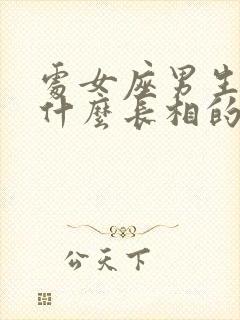 處女座男生
什麼長相的
公天下